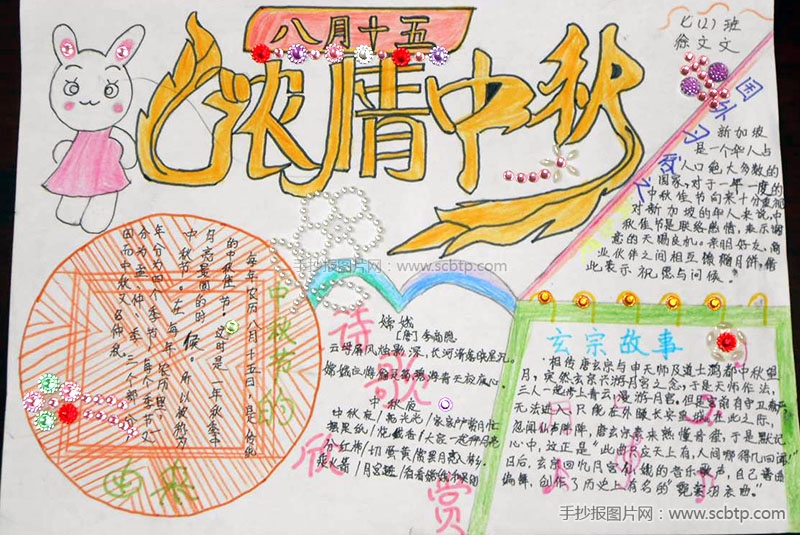 八月十五
浓情中秋
七(2)班
徐文文
国外习友之
新加坡
是一个华人占
人口绝大多数的
国家,对于一年一度的
中秋佳节向来十分重视
对新加坡的年人来说,中
秋佳节是联络感情,表示谢
意的天赐良机。亲朋好友、商
业伙伴之间相互馈赠月饼,借
此表示祝愿与问候。
手抄报图片网:www.scbtp.com
中秋节的
由来
每年农历八月十五日,是传统
的中秋佳节。这时是一年秋季中
月亮最圆的时候。所以被称为
中秋节。在每年农历里,一
年分为四个季节,每个季节又
分为孟、仲、季三个部分
因而中秋又名仲秋。
诗歌欣赏
嫦娥
[唐]李商隐
云母屏风烛影深,长河渐落晓星沉。
嫦娥应悔偷灵药,碧海青天夜夜心
中秋夜
中秋夜/亮光光/家家户户赏月忙
摆果饼/
分红柿/切
乘火箭/月宫逛/
玄宗故事
相传唐玄宗与申天师及道士鸿都中秋望
月,突然玄宗兴游月宫之念,于是天师作法,
三人一起步上青云,漫游月宫。但是宫前有守卫森严
无法进入,只能在外瞰长安皇城在此之际,
忽闻仙声阵阵,唐玄宗素来熟懂音律,于是默记
心中,这正是“此曲只应天上有,人间哪得几回闻”
日后,玄宗回忆月宫仙娥的音乐歌声,自己谱曲
编舞,创作了历史上有名的“霓裳羽衣曲。”
手抄报图片网:www.scbtp.com